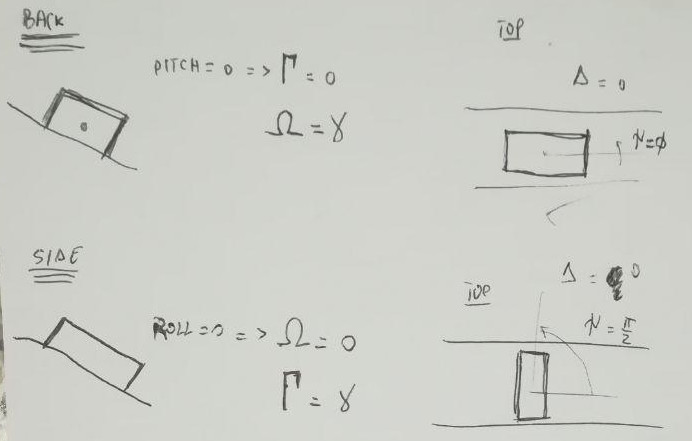 BACK
PITCH = 0 => Γ = 0
Ω = γ
TOP
Δ = 0
ψ = ϕ
SIDE
ROLL = 0 => Ω = 0
Γ = γ
TOP
Δ = 0
ψ = π/2